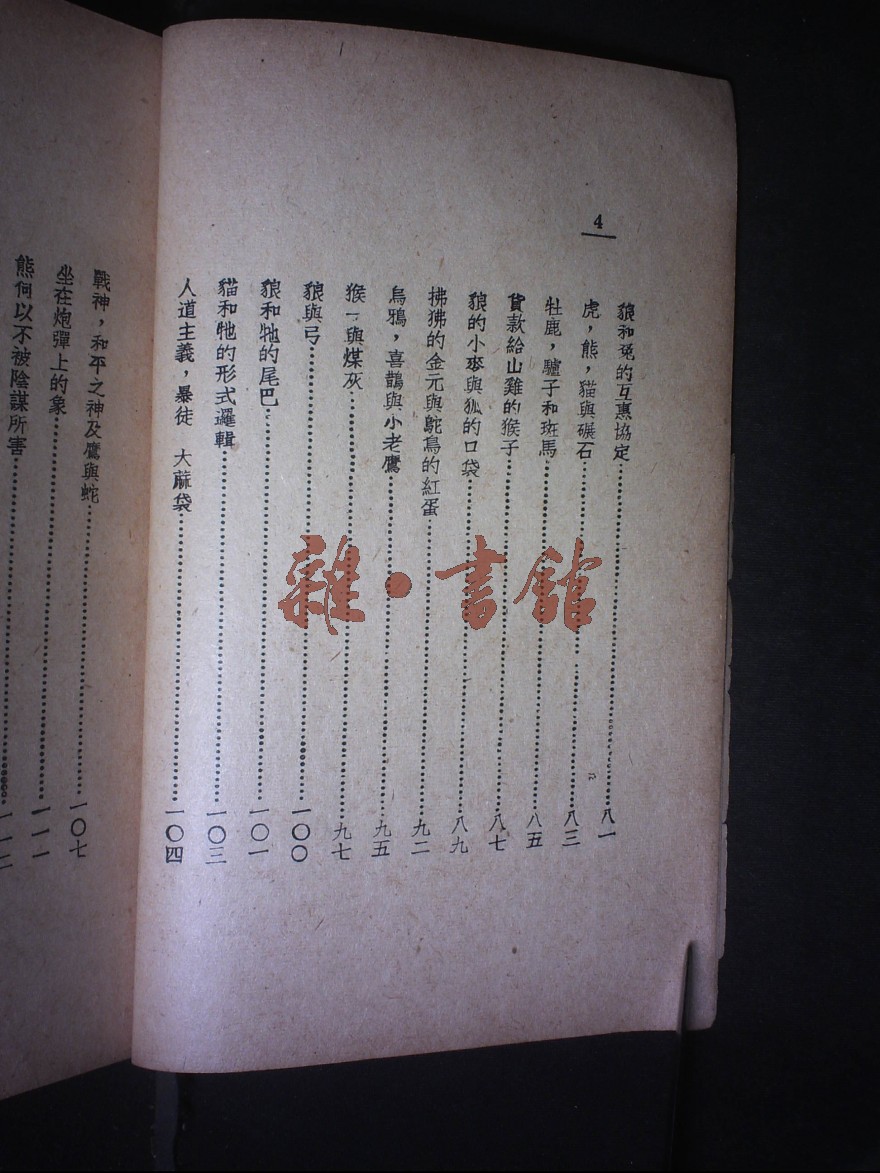 4
狼和兎的互惠協定……八一
虎，熊，貓與碾石……八三
牡鹿，驢子和斑馬……八五
貸款給山雞的猴子……八七
狼的小麥與狐的口袋……八九
拂狒的金元與鴕鳥的紅蛋……九二
烏鴉，喜鵲與小老鷹……九五
猴一與煤灰……九七
狼與弓……一〇〇
狼和牠的尾巴……一〇一
貓和牠的形式邏輯……一〇三
人道主義，暴徒 大蔴袋……一〇四
戰神，和平之神及鷹與蛇……一〇七
坐在炮彈上的象……一一一
熊何以不被陰謀所害……一一二
雜·書館